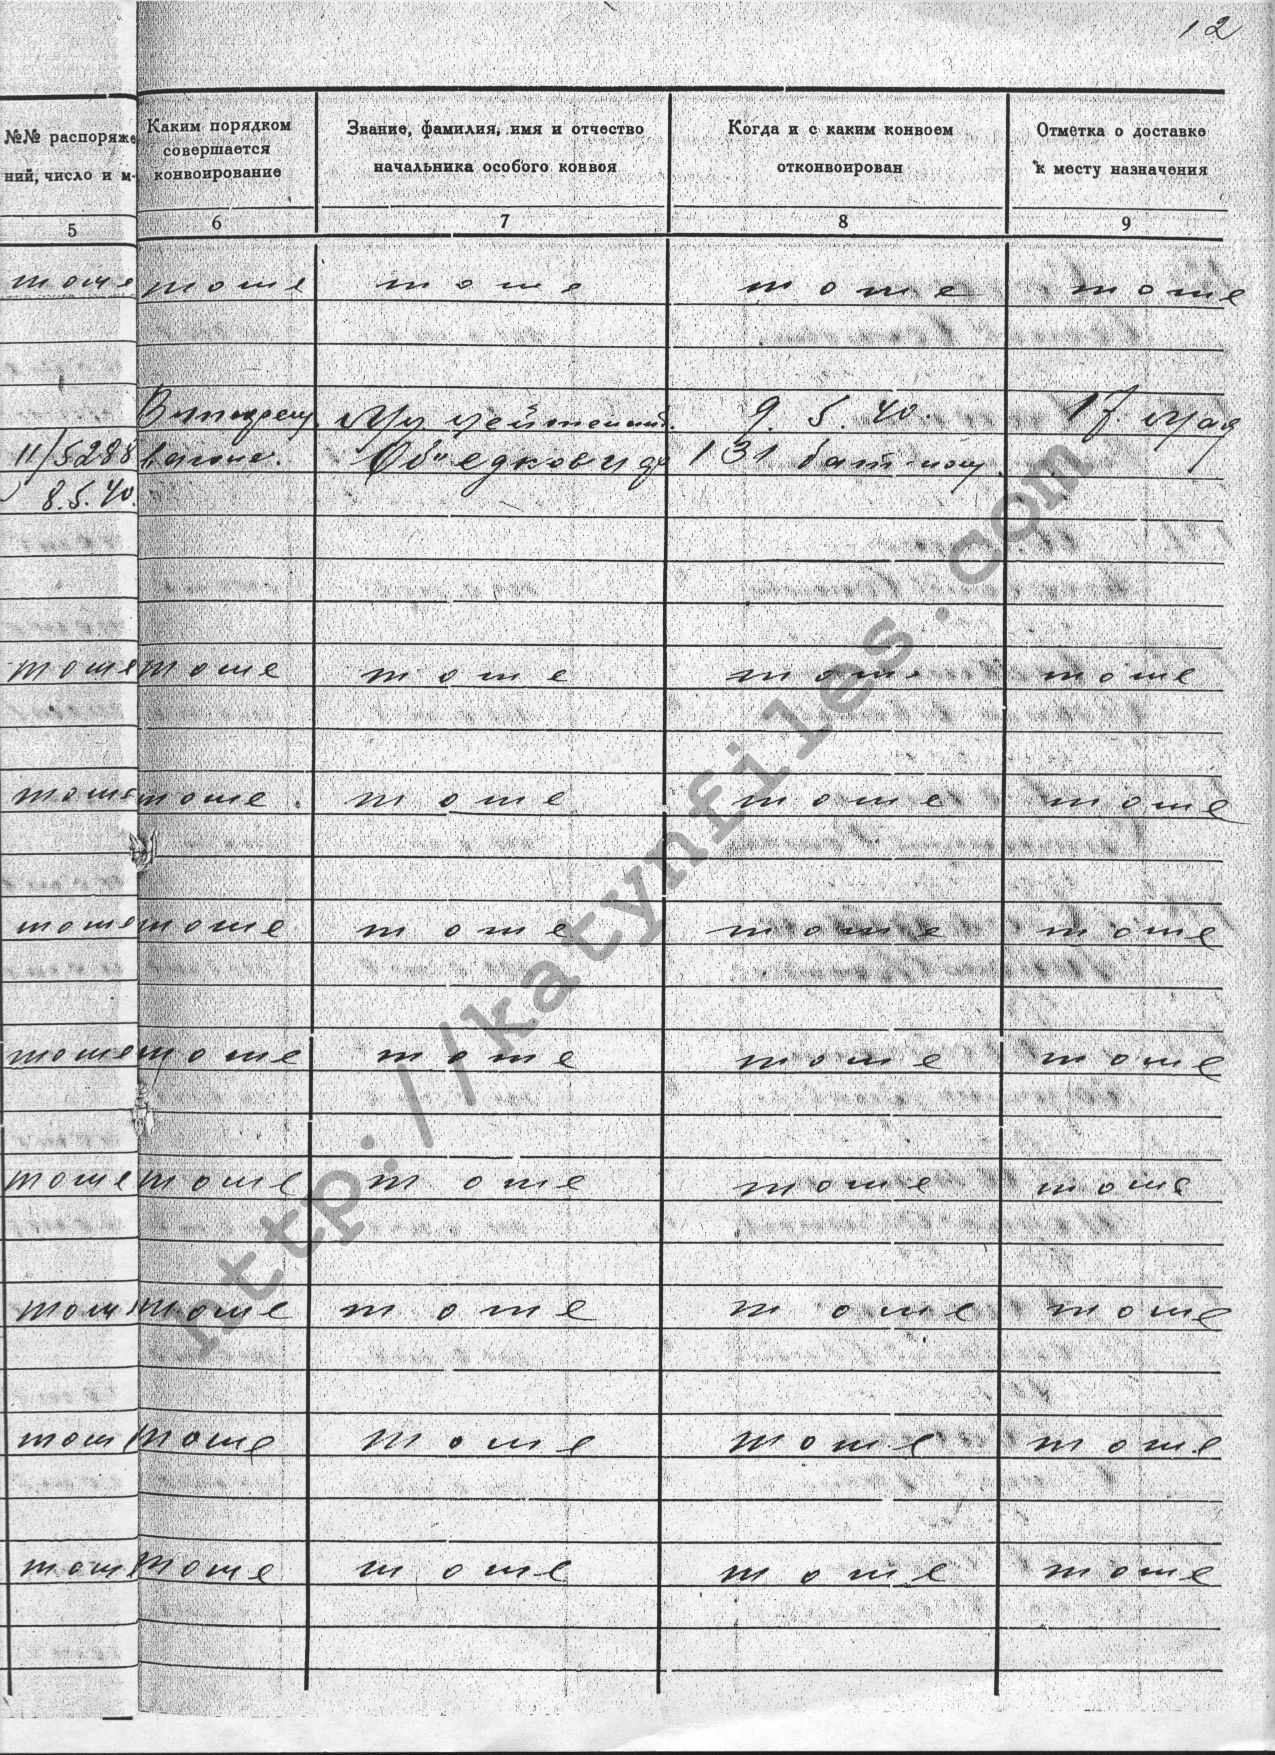 12
№№ распоряже
ний, число и м-
Каким порядком
совершается
конвоирование
Звание, фамилия, имя и отчество
начальника особого конвоя
Когда и с каким конвоем
отконвоирован
Отметка о доставке
к месту назначения
5 6 7 8 9
тоже тоже тоже тоже тоже
9. 5. 40. 17 мая
11/5288 вагоне. 131 бат-ном.
8.5.40.
тоже тоже тоже тоже тоже
тоже тоже. тоже тоже тоже
тоже тоже тоже тоже тоже
тоже тоже тоже тоже тоже
тоже тоже тоже тоже тоже
тоже тоже тоже тоже тоже
тоже тоже тоже тоже тоже
тоже тоже тоже тоже тоже
http://katynfiles.com